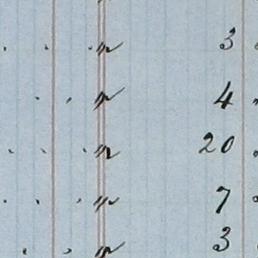 " 3
" 4
" 20
" 7
" 3